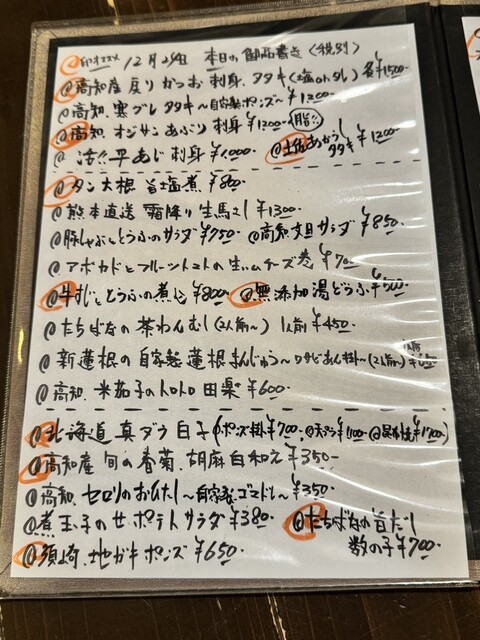 @印オススメ 12月24日 本日の御品書き(税別)
@高知産 戻りかつお 刺身、タタキ(塩orタレ) 各¥1500-
@高知、寒ブレ タタキ〜自家製ポンズ〜¥1200-
@高知、オジサンあぶり刺身 ¥1200-
@活〆平あじ 刺身 ¥1,000-
@土佐あかうし タタキ ¥1200
@タン大根 旨塩煮 ¥800-
@熊本直送 霜降り生馬さし ¥1300-
@豚しゃぶととうふのサラダ ¥750- @高知文旦サラダ ¥850-
@アボカドとフルーツトマトの生ハムチーズ巻 ¥700-
@牛すじととうふの煮込 ¥800- @無添加湯どうふ ¥500-
@たちばなの茶わんむし(2人前〜) 1人前 ¥450-
@新蓮根の自家製蓮根まんじゅう〜ワサビあん掛〜(2人前〜)
@高知、米茄子のトロトロ田楽 ¥600-
@北海道 真ダラ白子(@ポンズ掛¥700、@天プラ¥1100-@昆布焼¥1200)
@高知産 旬の春菊、胡麻白和え ¥350-
@高知、セロリのおひたし〜自家製ゴマドレ〜¥350-
@煮玉子のせポテトサラダ ¥380-
@たちばなの旨だし 数の子 ¥700-
@須崎、地ガキポンズ ¥650-